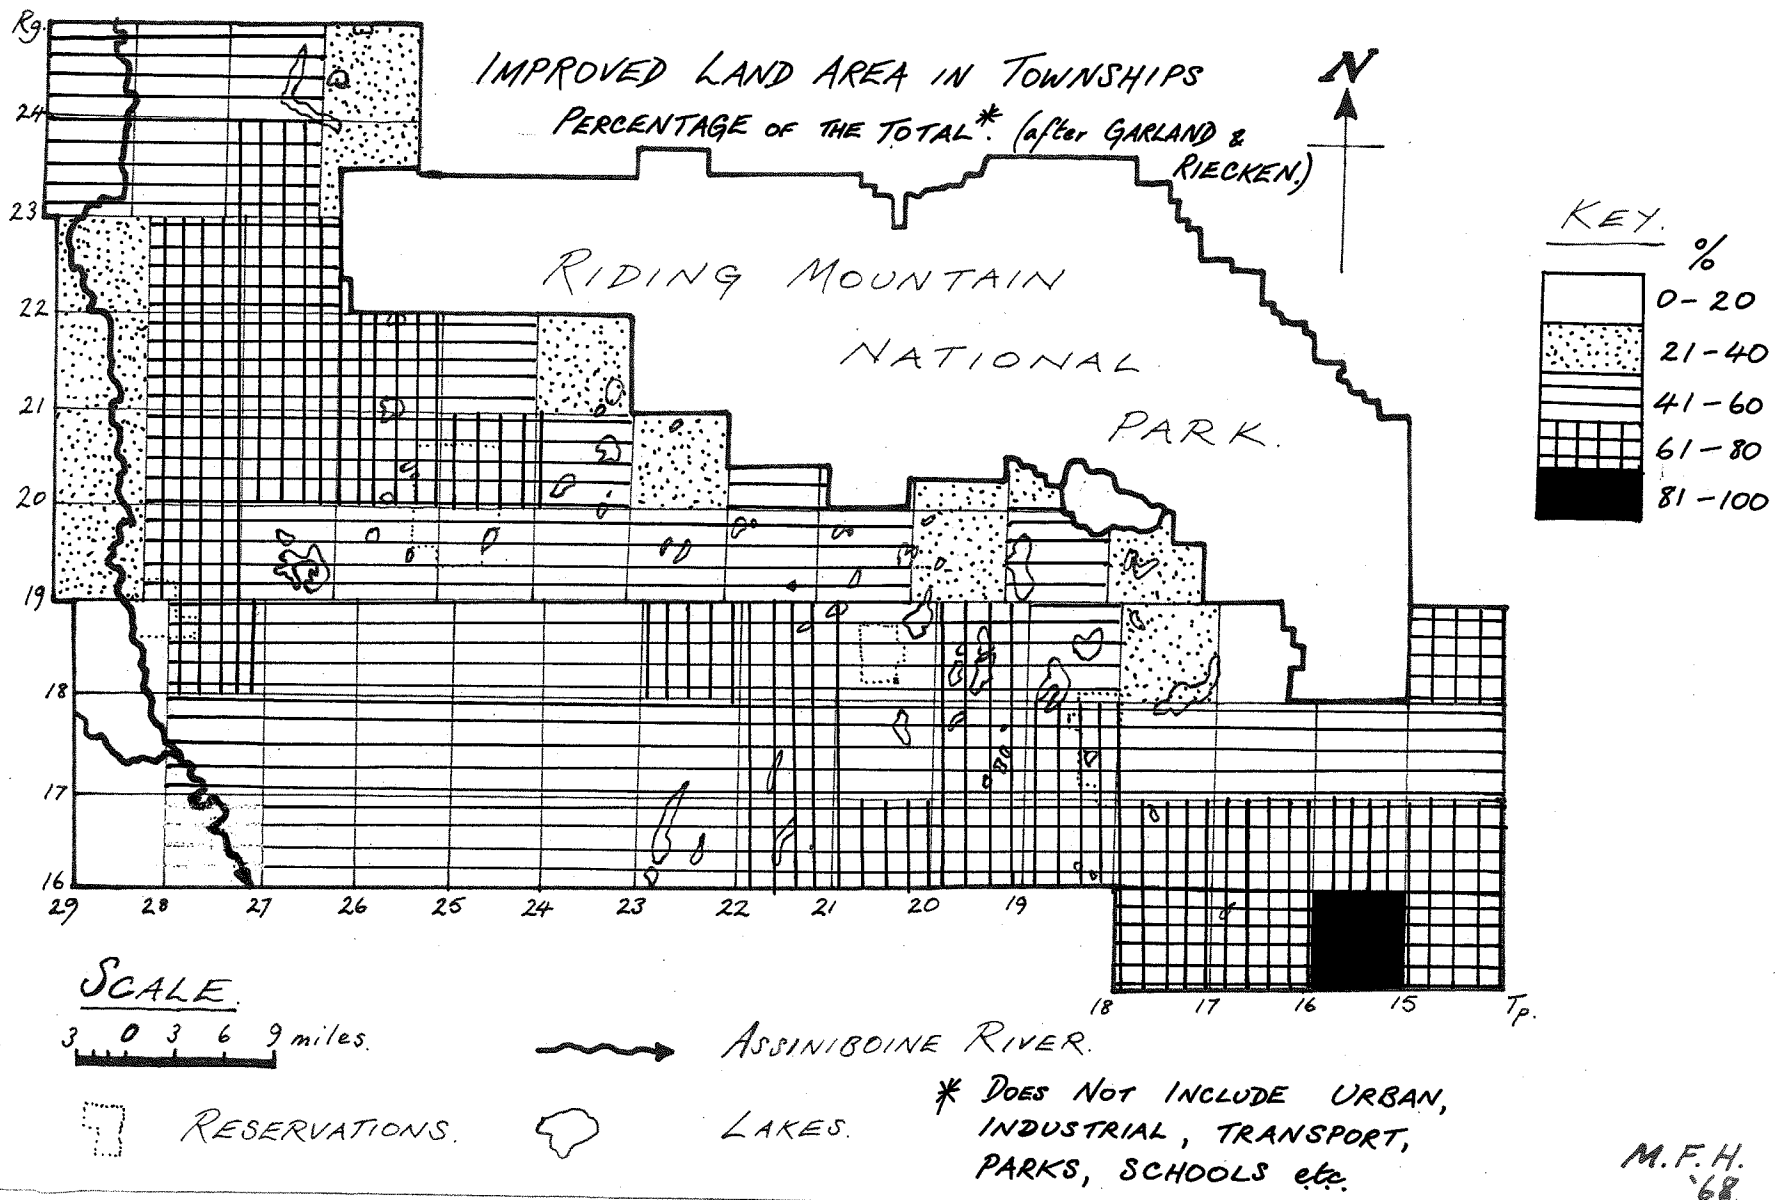 Rg.
IMPROVED LAND AREA IN TOWNSHIPS
PERCENTAGE OF THE TOTAL*. (after GARLAND &
RIECKEN.)
N
24
23
22
21
20
19
18
17
16
RIDING MOUNTAIN
NATIONAL
PARK.
KEY.
%
0-20
21-40
41-60
61-80
81-100
29 28 27 26 25 24 23 22 21 20 19
18 17 16 15 Tp.
SCALE.
3 0 3 6 9 miles.
ASSINIBOINE RIVER.
RESERVATIONS.
LAKES.
* DOES NOT INCLUDE URBAN,
INDUSTRIAL, TRANSPORT,
PARKS, SCHOOLS etc.
M.F.H.
'68